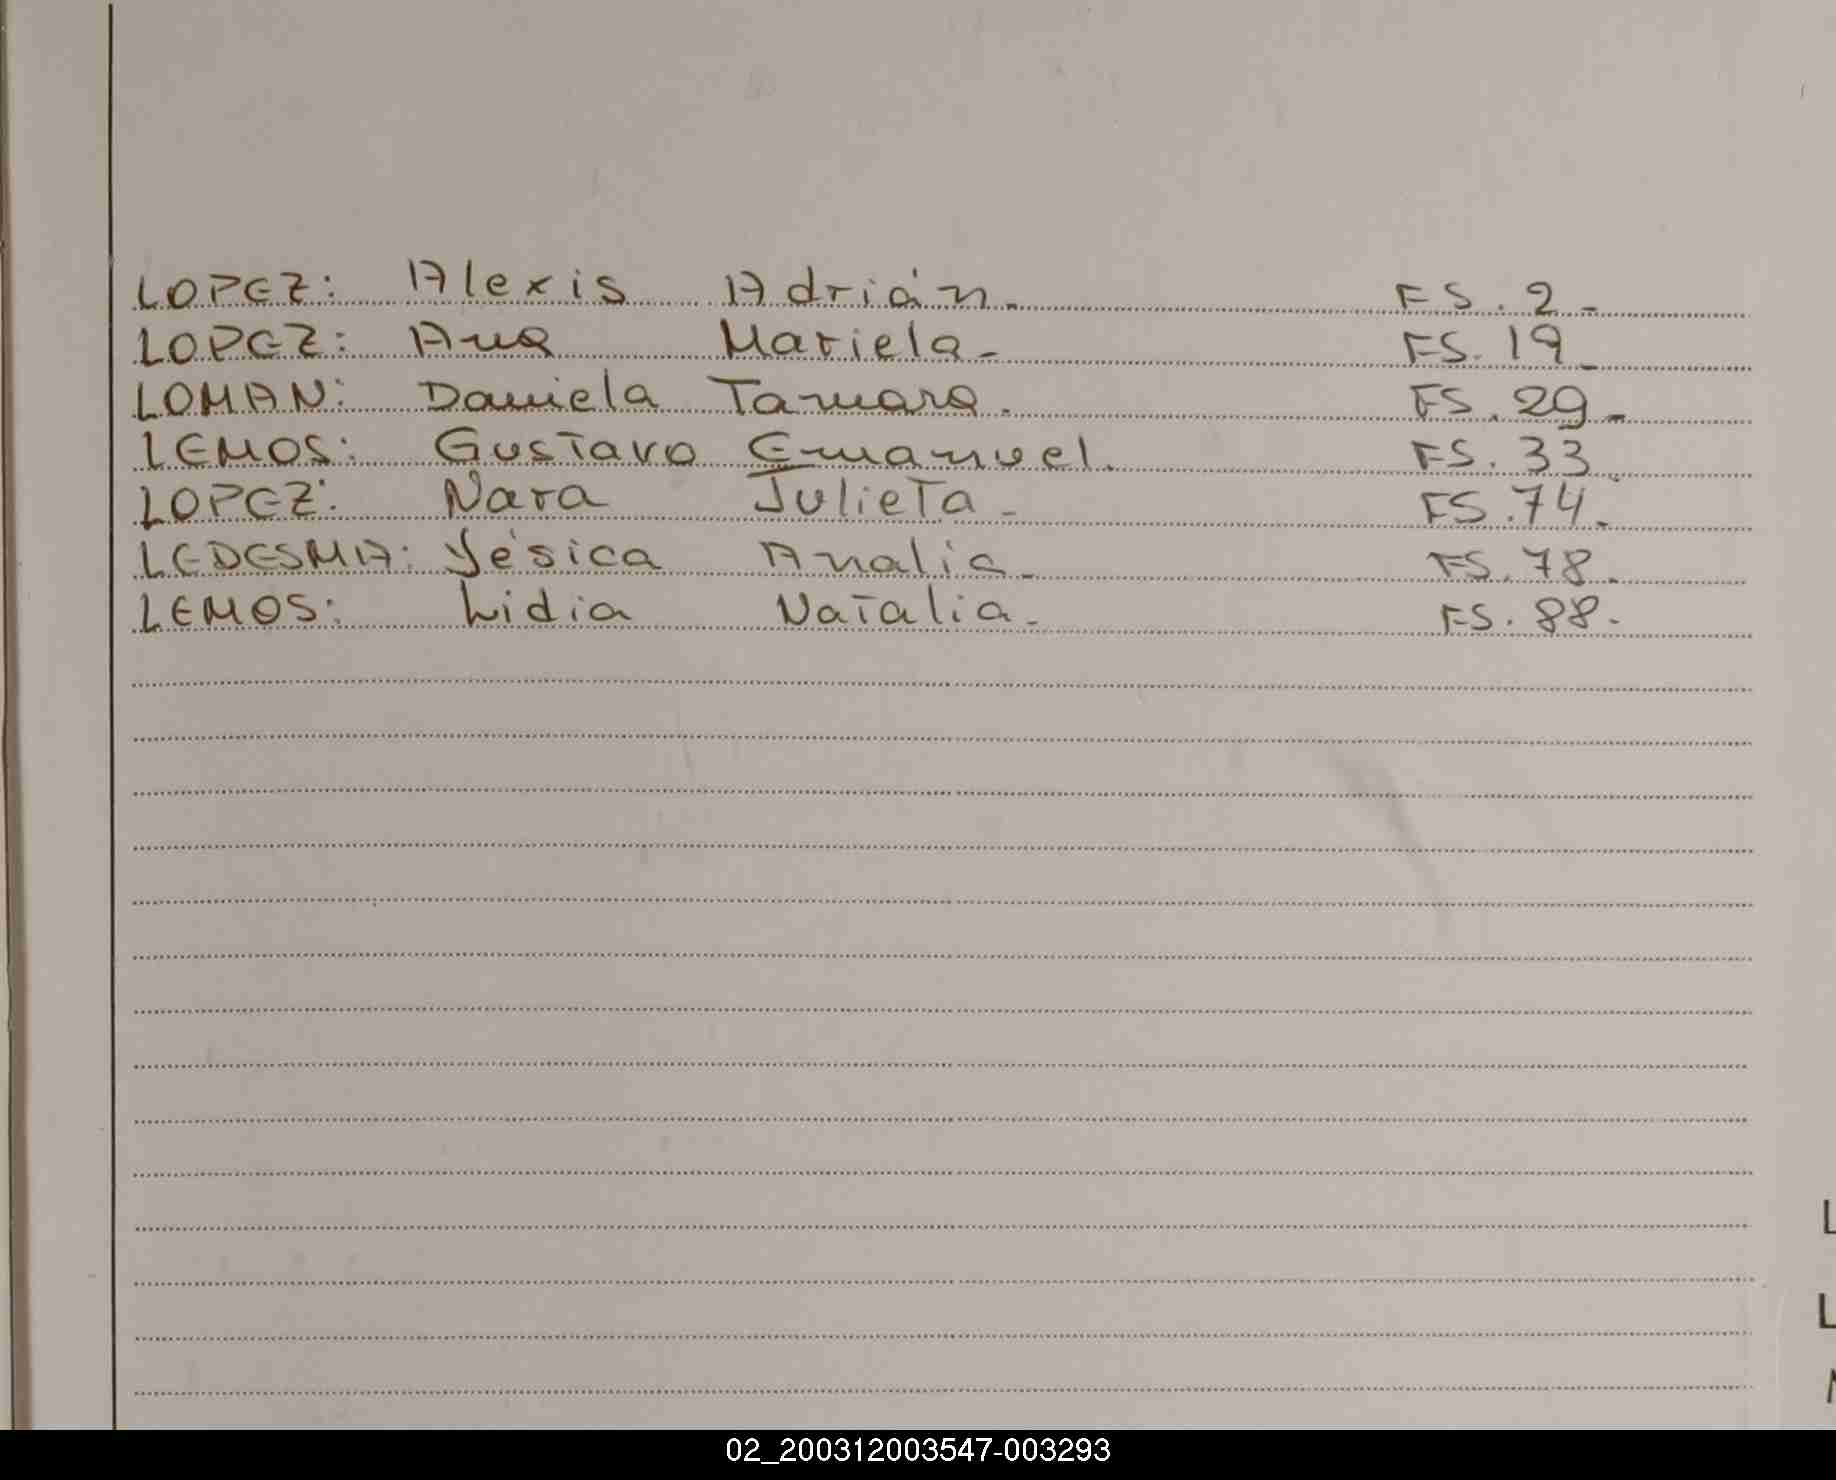 LOPEZ: Alexis Adrián. FS. 2-
LOPEZ: Ana Mariela- FS. 19
LOMAN: Daniela Tamara. FS. 29-
LEMOS: Gustavo Emanuel. FS. 33
LOPEZ: Nara Julieta- FS. 74.
LEDESMA: Yésica Analia- FS. 78.
LEMOS: Lidia Natalia- FS. 88.
L
L
02_200312003547-003293